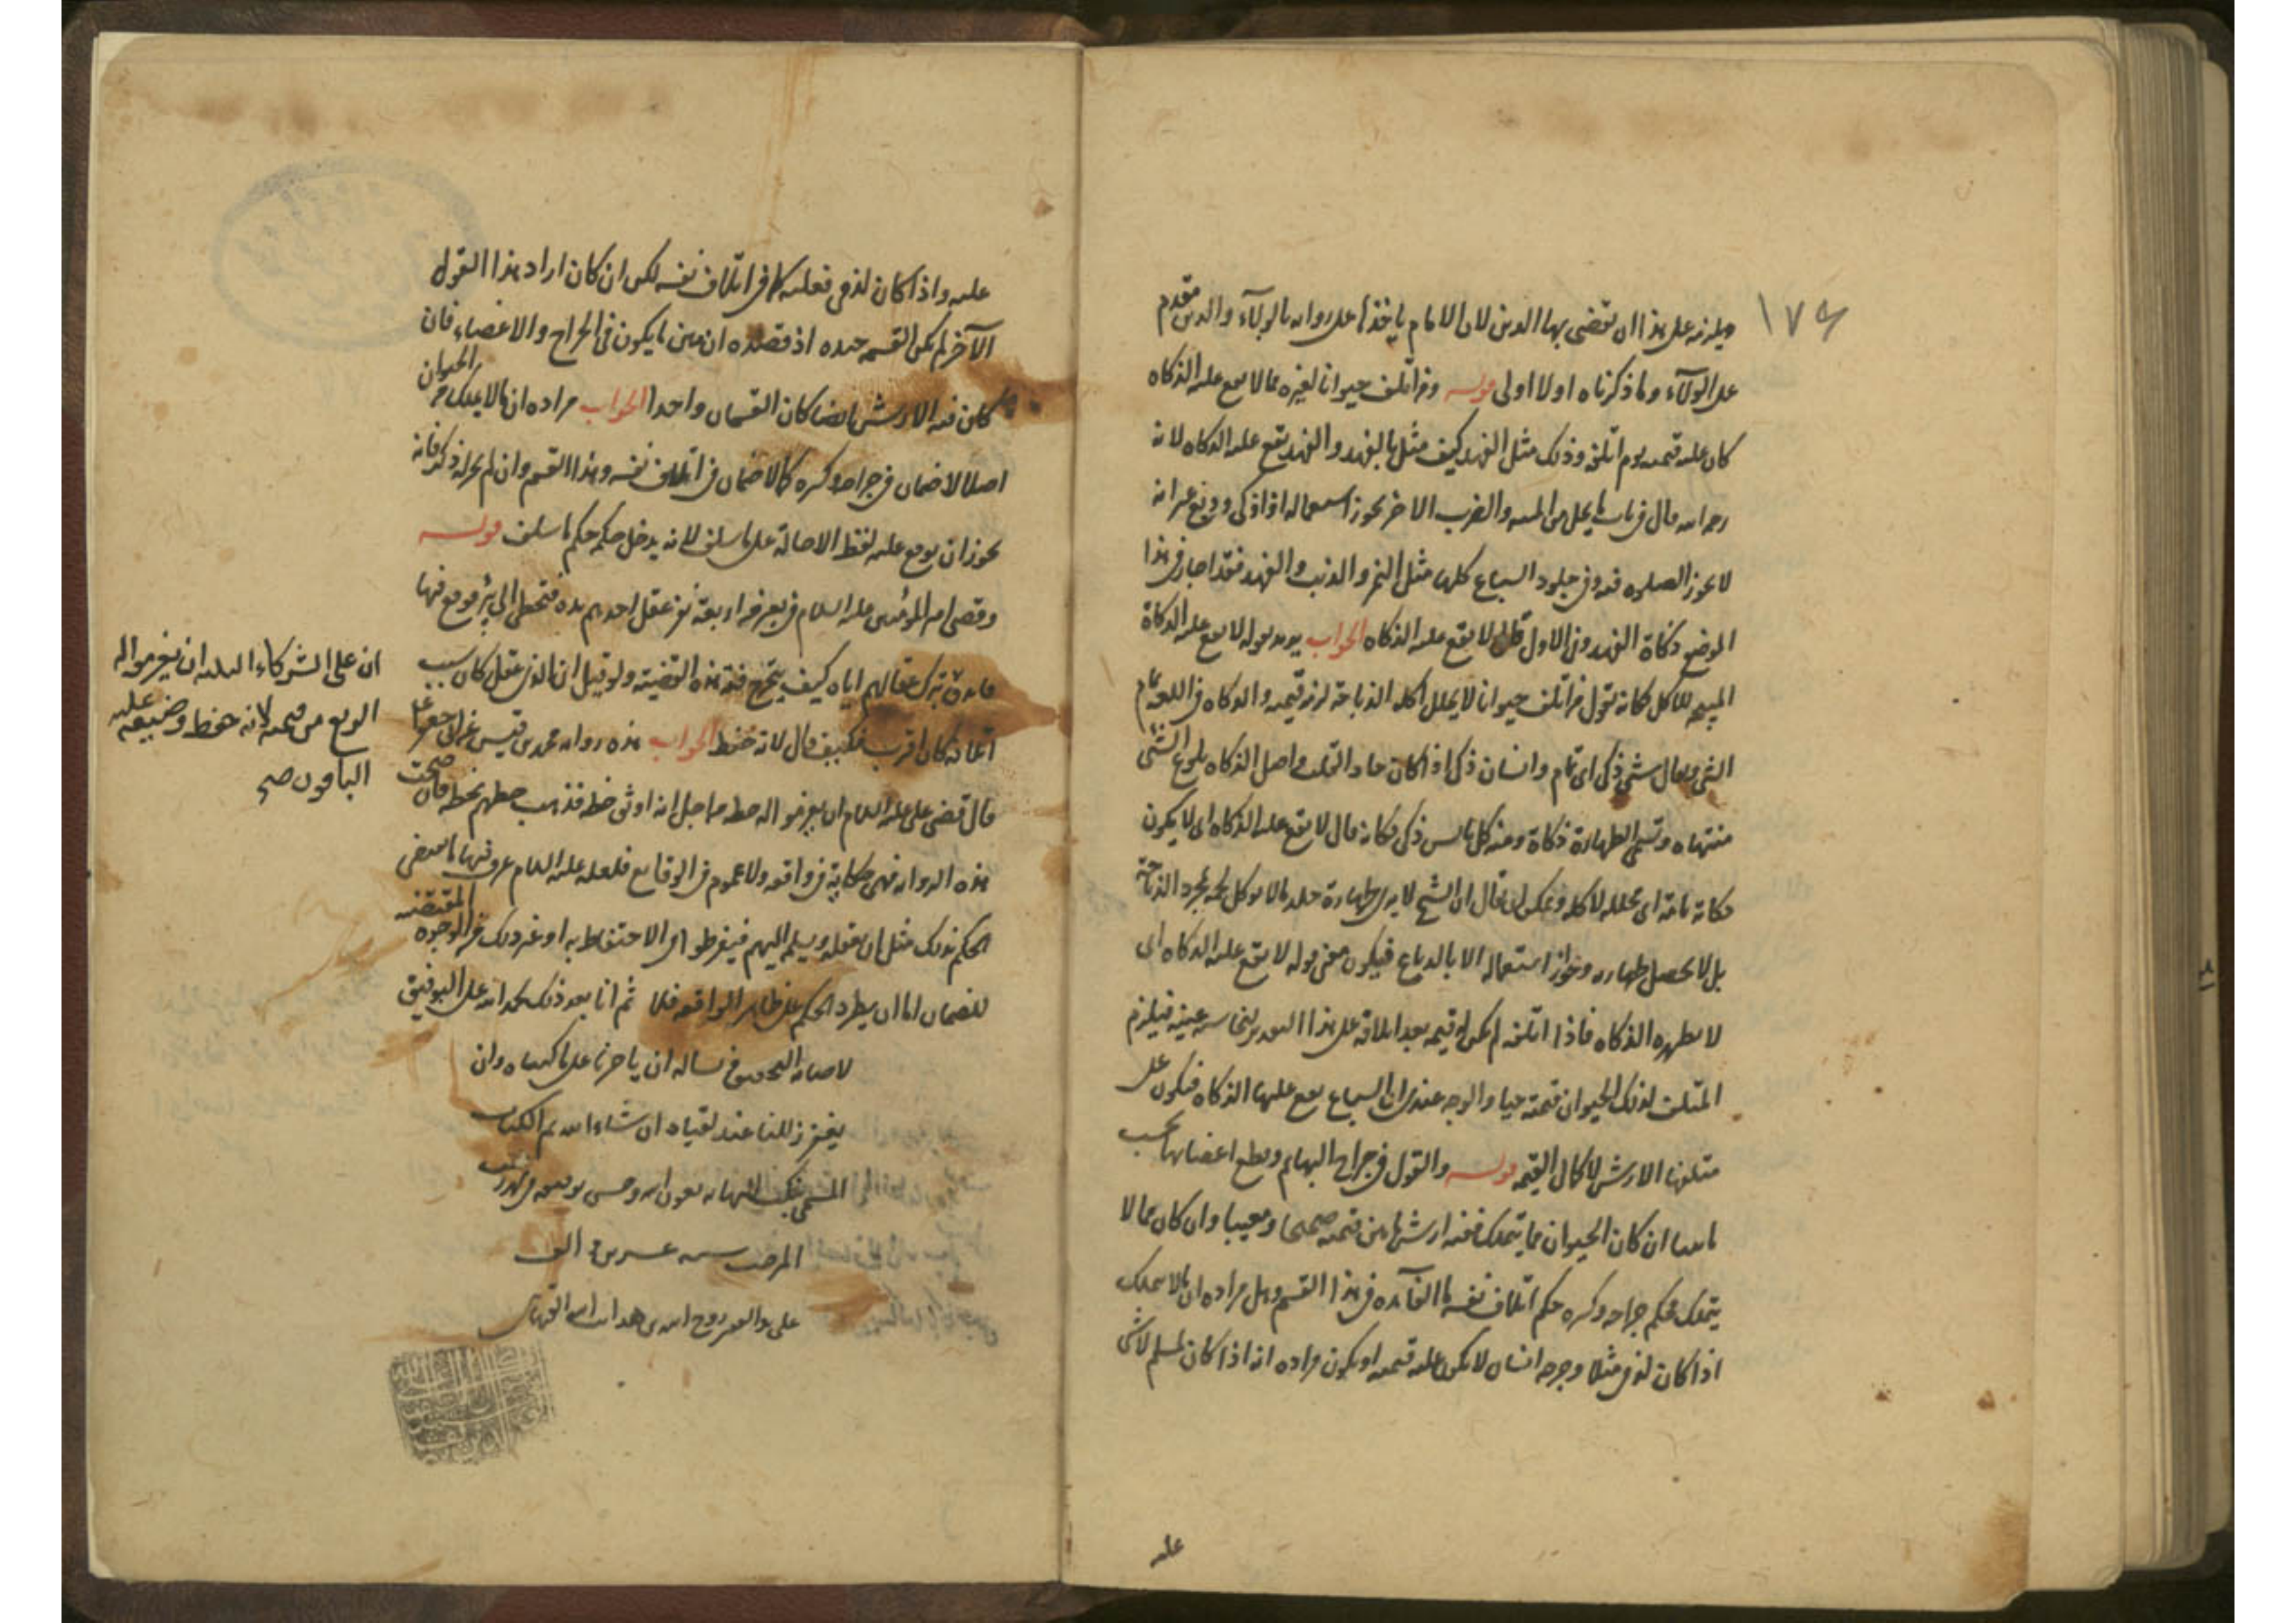 ١٧٤
ويلزم على هذا ان تقضى بها الدين لان الامام ياخذها على رواية بالولاء والدين مقدم
على الولاء وما ذكرناه اولا اولى قوله ومن اتلف حيوانا لغيره مما لا يقع عليه الذكاة
كان عليه قيمته يوم اتلفه وذلك مثل الفهد كيف مثل بالفهد والفهد يقع عليه الذكاة لانه
رحمه الله قال في باب ما يحل من الميتة والضرب الاخر يجوز استعماله اذا ذكى ودبغ غير انه
لا يجوز الصلوة فيه وفى جلود السباع كلها مثل النمر والذئب والفهد فقد اجاز في هذا
الموضع ذكاة الفهد وفى الاول قال لا يقع عليه الذكاة الجواب يريد بقوله لا يقع عليه الذكاة
المبيحة للاكل فكانه يقول من اتلف حيوانا لا يحلل اكله الذباحة لزمه قيمته والذكاة في اللغة تمام
الشئ ويقال شئ ذكى اى تام وانسان ذكى اذا كان حاد القلب واصل الذكاة بلوغ الشئ
منتهاه وتسمى الطهارة ذكاة ومنه كل يابس ذكى فكانه قال لا يقع عليه الذكاة اى لا يكون
ذكاته تامة اى محللة لاكله ويمكن ان يقال ان الشيخ لا يرى طهارة جلد ما لا يوكل لحمه بمجرد الذباحة
بل لا يحصل طهارته وجواز استعماله الا بالدباغ فيكون معنى قوله لا يقع عليه الذكاة اى
لا يطهره الذكاة فاذا اتلفه لم يكن له قيمة بعد اتلافه على هذا التقدير لنجاسة عينه فيلزم
المتلف لذلك الحيوان قيمته حيا والوجه عندى ان السباع يقع عليها الذكاة فيكون على
متلفها الارش لا كمال القيمة قوله والقول في جراح البهايم وقطع اعضائها بحسب
ان كان الحيوان مما يتملك ففيه ارش ما بين قيمته صحيحا ومعيبا وان كان مما لا
يتملك فحكم جراحه وكسره حكم اتلاف نفسه ما الفائدة في هذا القسم وهل مراده ان ما لا يتملك
اذا كان لذمى مثلا وجرحه انسان لا يكون عليه قيمته او يكون مراده انه اذا كان لمسلم لا شئ
عليه
عليه واذا كان لذمى فعليه كما في اتلاف نفسه لكن ان كان اراد بهذا القول
الآخر لم يكن القسمة جيدة اذ قصده ان يبين ما يكون في الجراح والاعضاء فان
كان فيه الارش ايضا كان القسمان واحدا الجواب مراده ان ما لا يملك من الحيوان
اصلا لا ضمان في جراحه وكسره كما لا ضمان في اتلاف نفسه وهذا القسم وان لم يجر له ذكر فانه
يجوز ان يوقع عليه لفظ الاحالة على ما سلف لانه يدخل حكمه حكم ما سلف قوله
وقضى امير المؤمنين عليه السلام في بعير بين اربعة نفر عقل احدهم يده فتخطى الى بئر فوقع فيها
ما فرق بترك عقالهم اياه كيف يتخرج فقه هذه القضية ولو قيل ان الذى عقل كان سبب
اتلافه كان اقرب فكيف قال لانه حفظ الجواب هذه رواية محمد بن قيس عن ابى جعفر ع
قال قضى على عليه السلام ان يغرموا له حظه من اجل انه اوثق حظه فذهب حظهم بحظه فان صحت
هذه الرواية فهى حكاية في واقعة ولا عموم في الوقايع فلعله عليه السلام عرف فيها ما يقتضى
الحكم بذلك مثل ان يعقله ويسلمه اليهم فيفرطوا في الاحتفاظ به او غير ذلك من الوجوه المقتضية
للضمان اما ان يطرد الحكم على ظاهر الواقعة فلا ثم انا بعد ذلك نحمد الله على التوفيق
لاصابة التحقيق ونساله ان ياجرنا على ما كتبناه وان
يغفر زللنا عند لقياه ان شاء الله تم الكتاب
المسمى بنكت النهاية بعون الله وحسن توفيقه في شهر رجب
المرجب سنه عشرين الف
على يد الفقير روح الله بن
ان على الشركاء الثلثة ان يغرموا له
الربع من قيمته لانه حفظ وضيع عليه
الباقون صح